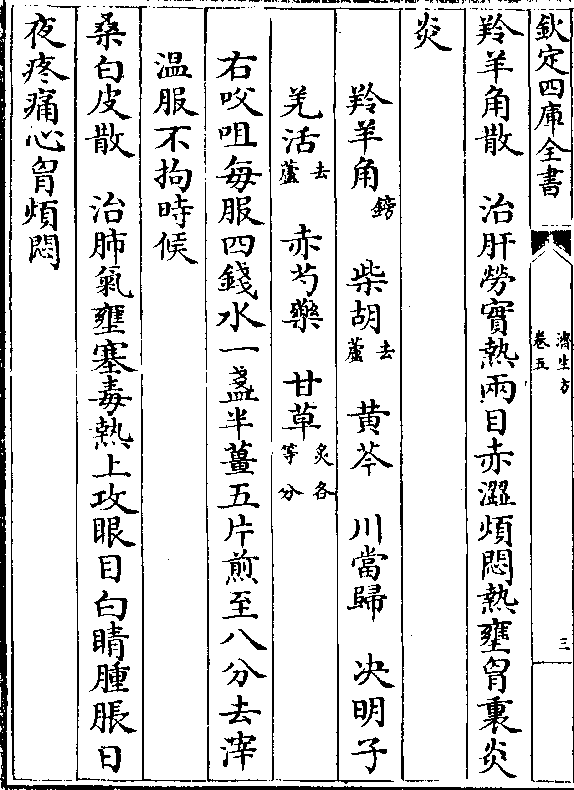 欽定四庫全書
濟生方
卷五
三
羚羊角散　治肝勞實熱兩目赤澀煩悶熱壅胷裏炎
炎
羚羊角鎊　柴胡去蘆　黄芩　川當歸　决明子
羌活去蘆　赤芍藥　甘草炙各等分
右㕮咀每服四錢水一盞半薑五片煎至八分去滓
温服不拘時候
桑白皮散　治肺氣壅塞毒熱上攻眼目白睛腫脹日
夜疼痛心胷煩悶